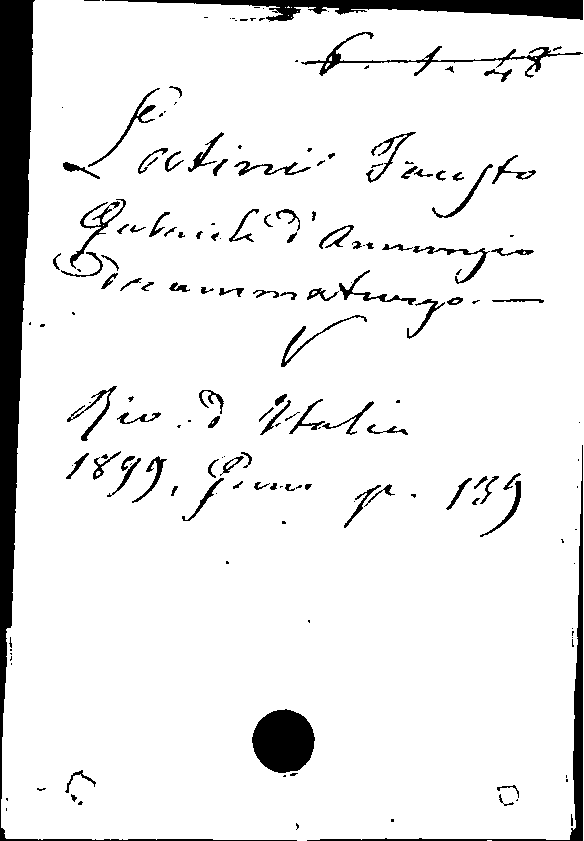 6. 1. 48
Latini Fausto
Gabriele d'Annunzio
drammaturgo. —
Riv. d Italia
1899, Genn p. 139